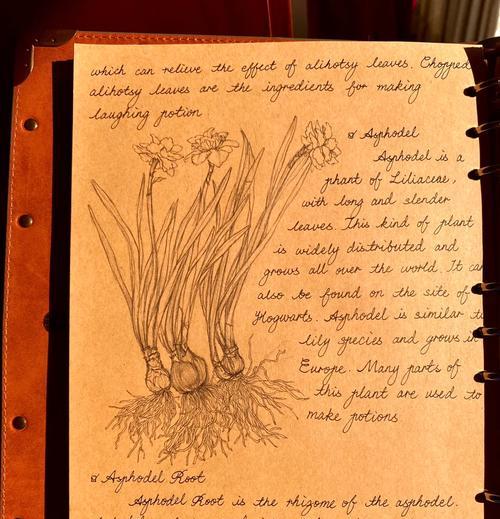 which can relieve the effect of alihotsy leaves. Chopped
alihotsy leaves are the ingredients for making
laughing potion
Asphodel
Asphodel is a
phant of Liliaceae,
with long and slender
leaves. This kind of plant
is widely distributed and
grows all over the world. It can
also be found on the site of
Hogwarts. Asphodel is similar to
lily species and grows in
Europe. Many parts of
this plant are used to
make potions
Asphodel Root
Asphodel Root is the rhizome of the asphodel.